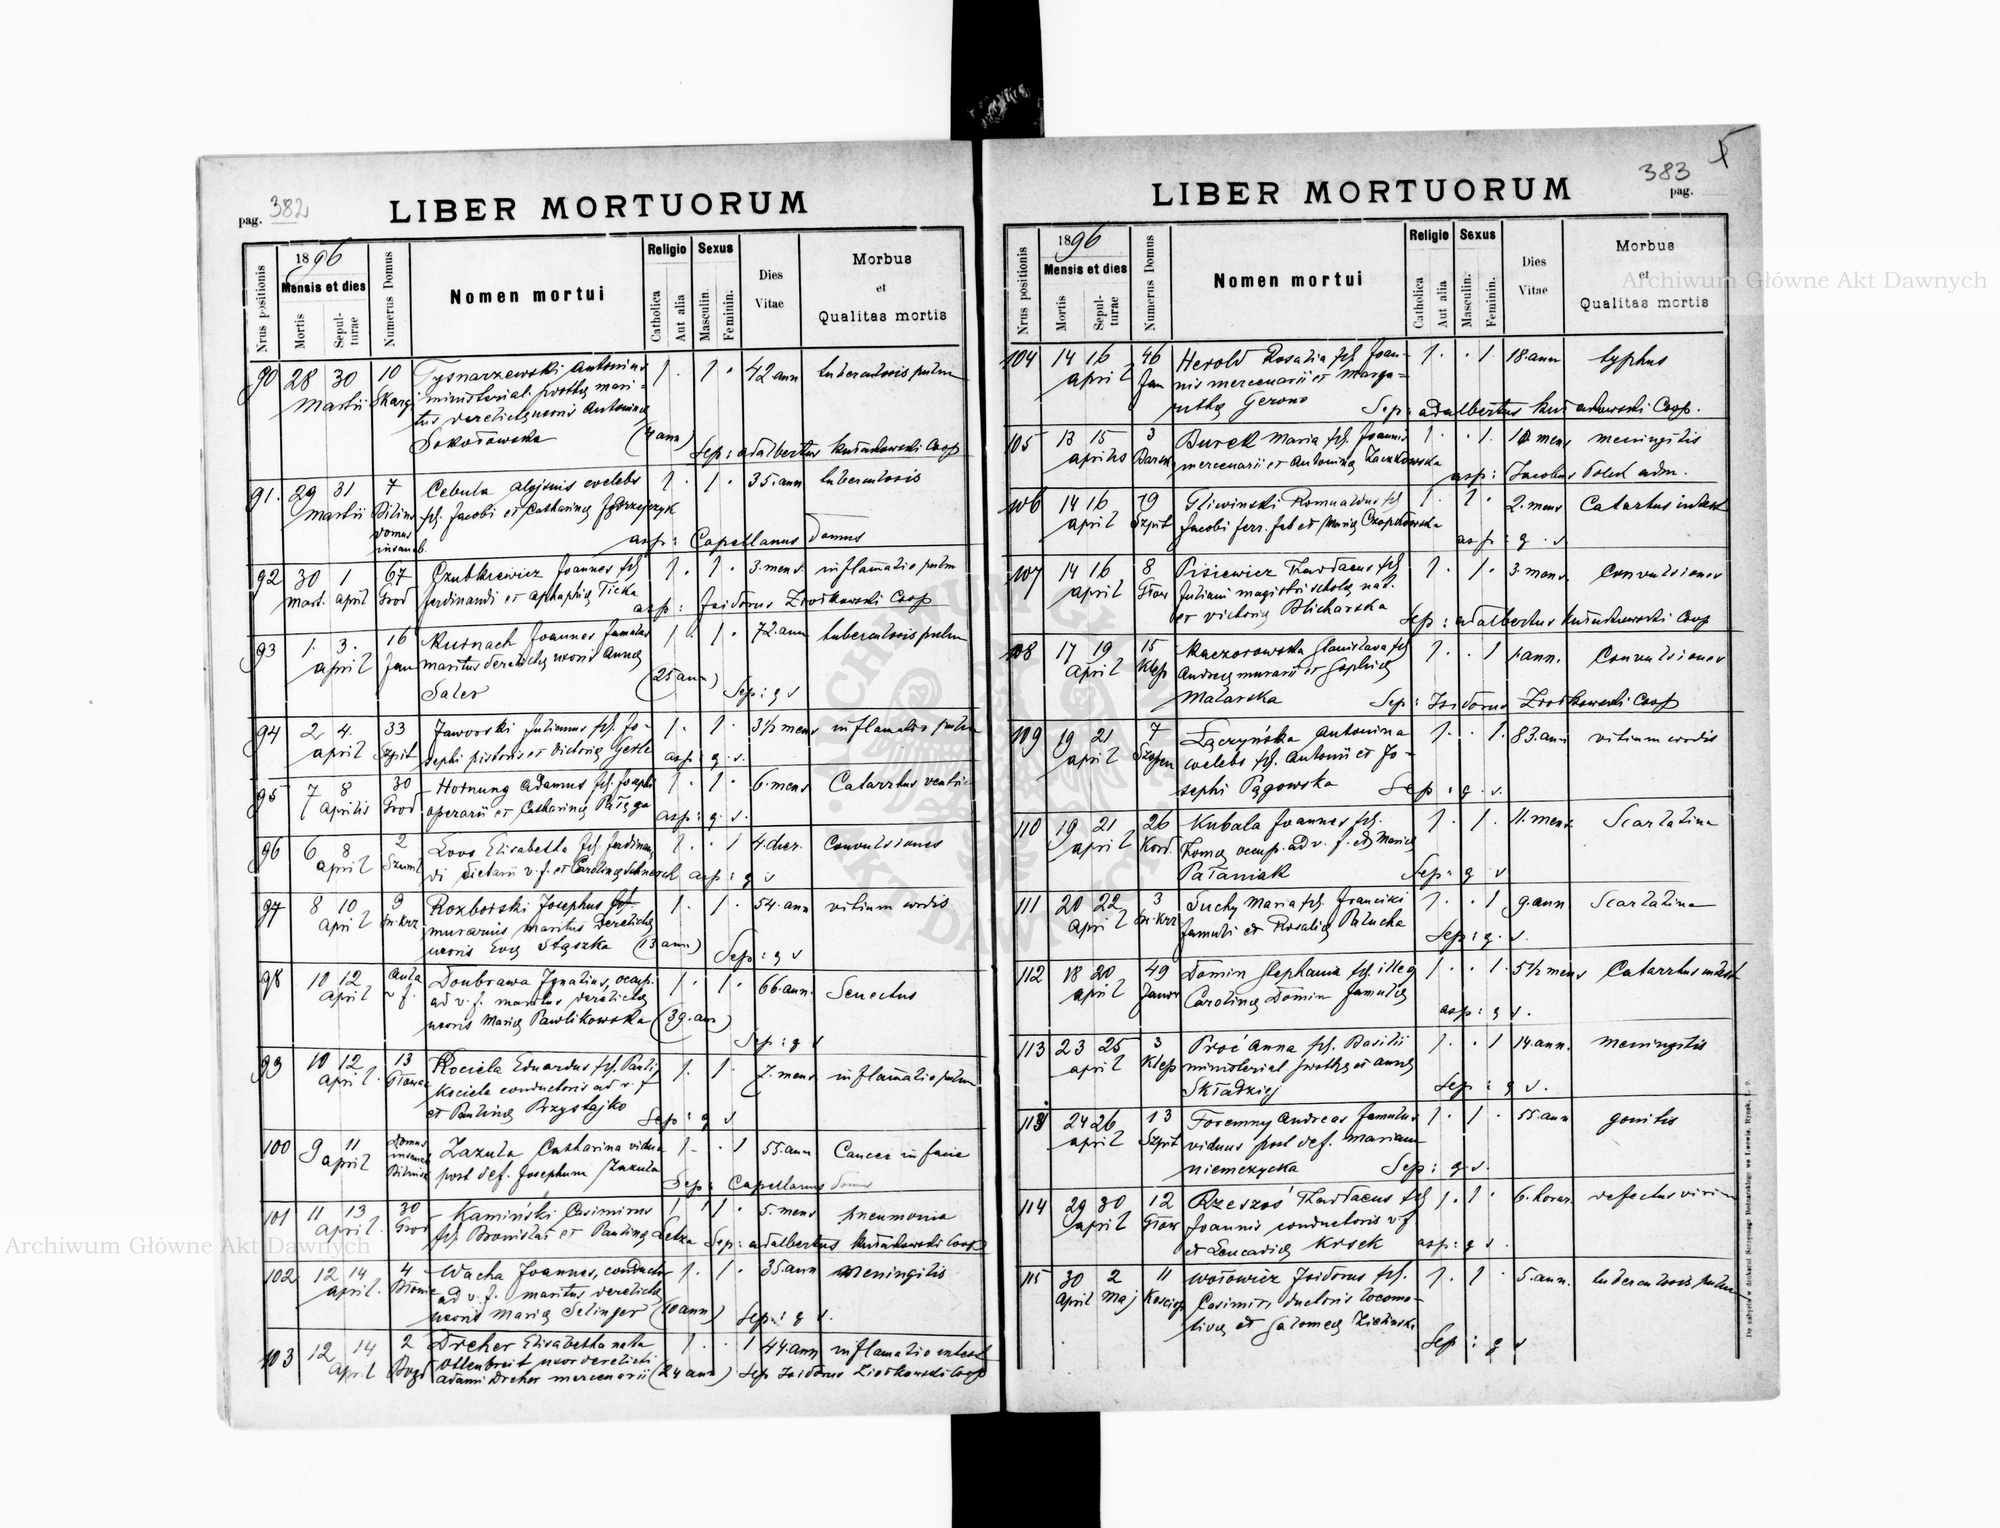 pag. 382
LIBER MORTUORUM
Nrus positionis
1896
Mensis et dies
Mortis
Sepulturae
Numerus Domus
Nomen mortui
Religio
Catholica
Aut alia
Sexus
Masculin.
Feminin.
Dies
Vitae
Morbus
et
Qualitas mortis
90 28 30 10 Tysnarzewski Antonius 1 . 1 . 42 ann tuberculosis pulm
Martii Skargi ministerial. mari-
tus derelictę uxoris Antoninę
Sokołowska (4 ann) Sep: Adalbertus Coop
91. 29 31 7 Cebula Aloisius coelebs 1 . 1 . 35. ann tuberculosis
Martii fil. Jacobi et Catharinę
domus
asp: Capellanus Domus
92 30 1 67 Joannes fil 1 . 1 . 3. mens. inflamatio pulm
Mart. April Grod Ferdinandi et Ticka
asp: Isidorus Coop
93 1. 3. 16 Kurnach Joannes famulus 1 . 1 . 72. ann tuberculosis pulm
April Jan maritus derelictę uxoris Annę
Saler (25 ann) Sep: q s
94 2 4. 33 Jaworski Julianus fil. Jo- 1 . 1 . 3½ mens inflamatio pulm
April Szpit sephi pistoris et Victorię asp: q. s.
95 7 8 30 Hornung Adamus fil. Josephi 1 . 1 . 6. mens Catarrhus
Aprilis Grod operarii et Catharinę asp: q. s.
96 6 8 2 Loos Elisabetha fil. Ferdinan- 1 . . 1 4. dier. Convulsiones
April di v. f. et Carolinę asp: q s
97 8 10 9 Rozborski Josephus 1 . 1 . 54. ann vitium cordis
April murarius maritus derelictę
uxoris Evę Staszka (13 ann) Sep: q s
98 10 12 Doubrawa Ignatius, occup. 1 . 1 . 66. ann. Senectus
April v f. ad v. f. maritus derelictę
uxoris Marię Pawlikowska (39. ann) Sep: q s
99 10 12 13 Kociela Eduardus fil. Pauli 1. 1. 7. mens inflamatio pulm
April. Kociela conductoris ad v. f
et Paulinę Przystajko Sep: q s
100 9 11 Domus Zazula Catharina vidua 1 . . 1 55. ann Cancer in facie
April post def. Josephum Zazula
Sep: Capellanus domus
101 11 13 30 Kamiński Casimirus 1 1 . 5. mens pneumonia
April. Grod fil. Bronislai et Paulinę Sep: Adalbertus Coop
102 12 14 4 Wacha Joannes, conductor 1 . 1 . 35. ann Meningitis
April. ad v. f. maritus derelictę
uxoris Marię Selinger (10 ann) Sep: q s.
103 12 14 2 Dreher Elisabetha nata 1 . 1 44. ann inflamatio intest
April Ottenbreit uxor derelicti
Adami Dreher mercenarii (24 ann) Sep Isidorus Coop
383
pag.
LIBER MORTUORUM
Nrus positionis
1896
Mensis et dies
Mortis
Sepulturae
Numerus Domus
Nomen mortui
Religio
Catholica
Aut alia
Sexus
Masculin.
Feminin.
Dies
Vitae
Morbus
et
Qualitas mortis
104 14 16 46 Herold Rosalia fil Joan- 1 . . 1. 18. ann typhus
April Jan nis mercenarii et Marga-
Sep: Adalbertus Coop.
105 13 15 3 Burek Maria fil. Joannis 1 . . 1. mens meningitis
Aprilis mercenarii et Antoninę
asp: Jacobus adm.
106 14 16 19 Gliwinski Romualdus fil 1. 1 . 2. mens Catarrhus intest
April Szpit Jacobi et Marię
asp: q. s.
107 14 16 8 Pisiewicz Thaddaeus fil 1. 1 . 3. mens. Convulsiones
April Juliani magistri scholę nat.
et Victorię Blicharska Sep: Adalbertus Coop
108 17 19 15 Kaczorowska Stanislava fil 1. . 1 1. ann. Convulsiones
April Klep Andreę murarii et Sophię
Malarska Sep: Isidorus Coop
109 19 21 7 Łączyńska Antonina 1 . . 1. 83. ann vitium cordis
April coelebs fil. Antonii et Jo-
sephi Pągowska Sep: q s.
110 19 21 26 Kubala Joannes fil. 1 . 1 . 11. mens. Scarlatina
April Kord. Thomę occup. ad v. f. et Marię
Pataniak Sep: q s
111 20 22 3 Suchy Maria fil. Francisci 1 . . 1 9. ann Scarlatina
April famuli et Rosalię Palucha
Sep: q. s.
112 18 20 49 Domin Stephania fil. illeg 1 . . 1. 5½ mens Catarrhus intest
April Carolinę Domin famulę
asp: q s.
113 23 25 3 Proć Anna fil. Basilii 1 . . 1 14. ann. meningitis
April Klep ministerial. et Annę
Sep: q s.
24 26 13 Foremny Andreas famulus 1 . 1 . 55. ann gonitis
April Szpit viduus post def. Mariam
Niemczycka Sep: q. s.
114 29 30 12 Rzeszoś Thaddaeus fil 1. 1 . 6. horar. defectus viriu
April Joannis conductoris v. f.
et Leucadię Krsek asp: q s.
115 30 2 11 Wołowicz Isidorus fil. 1. 1 . 5. ann. tuberculosis pulm
April Maj Casimiri ductoris locomo-
tivę et Salomeę Zielinska
Sep: q s
Archiwum Główne Akt Dawnych
Archiwum Główne Akt Dawnych